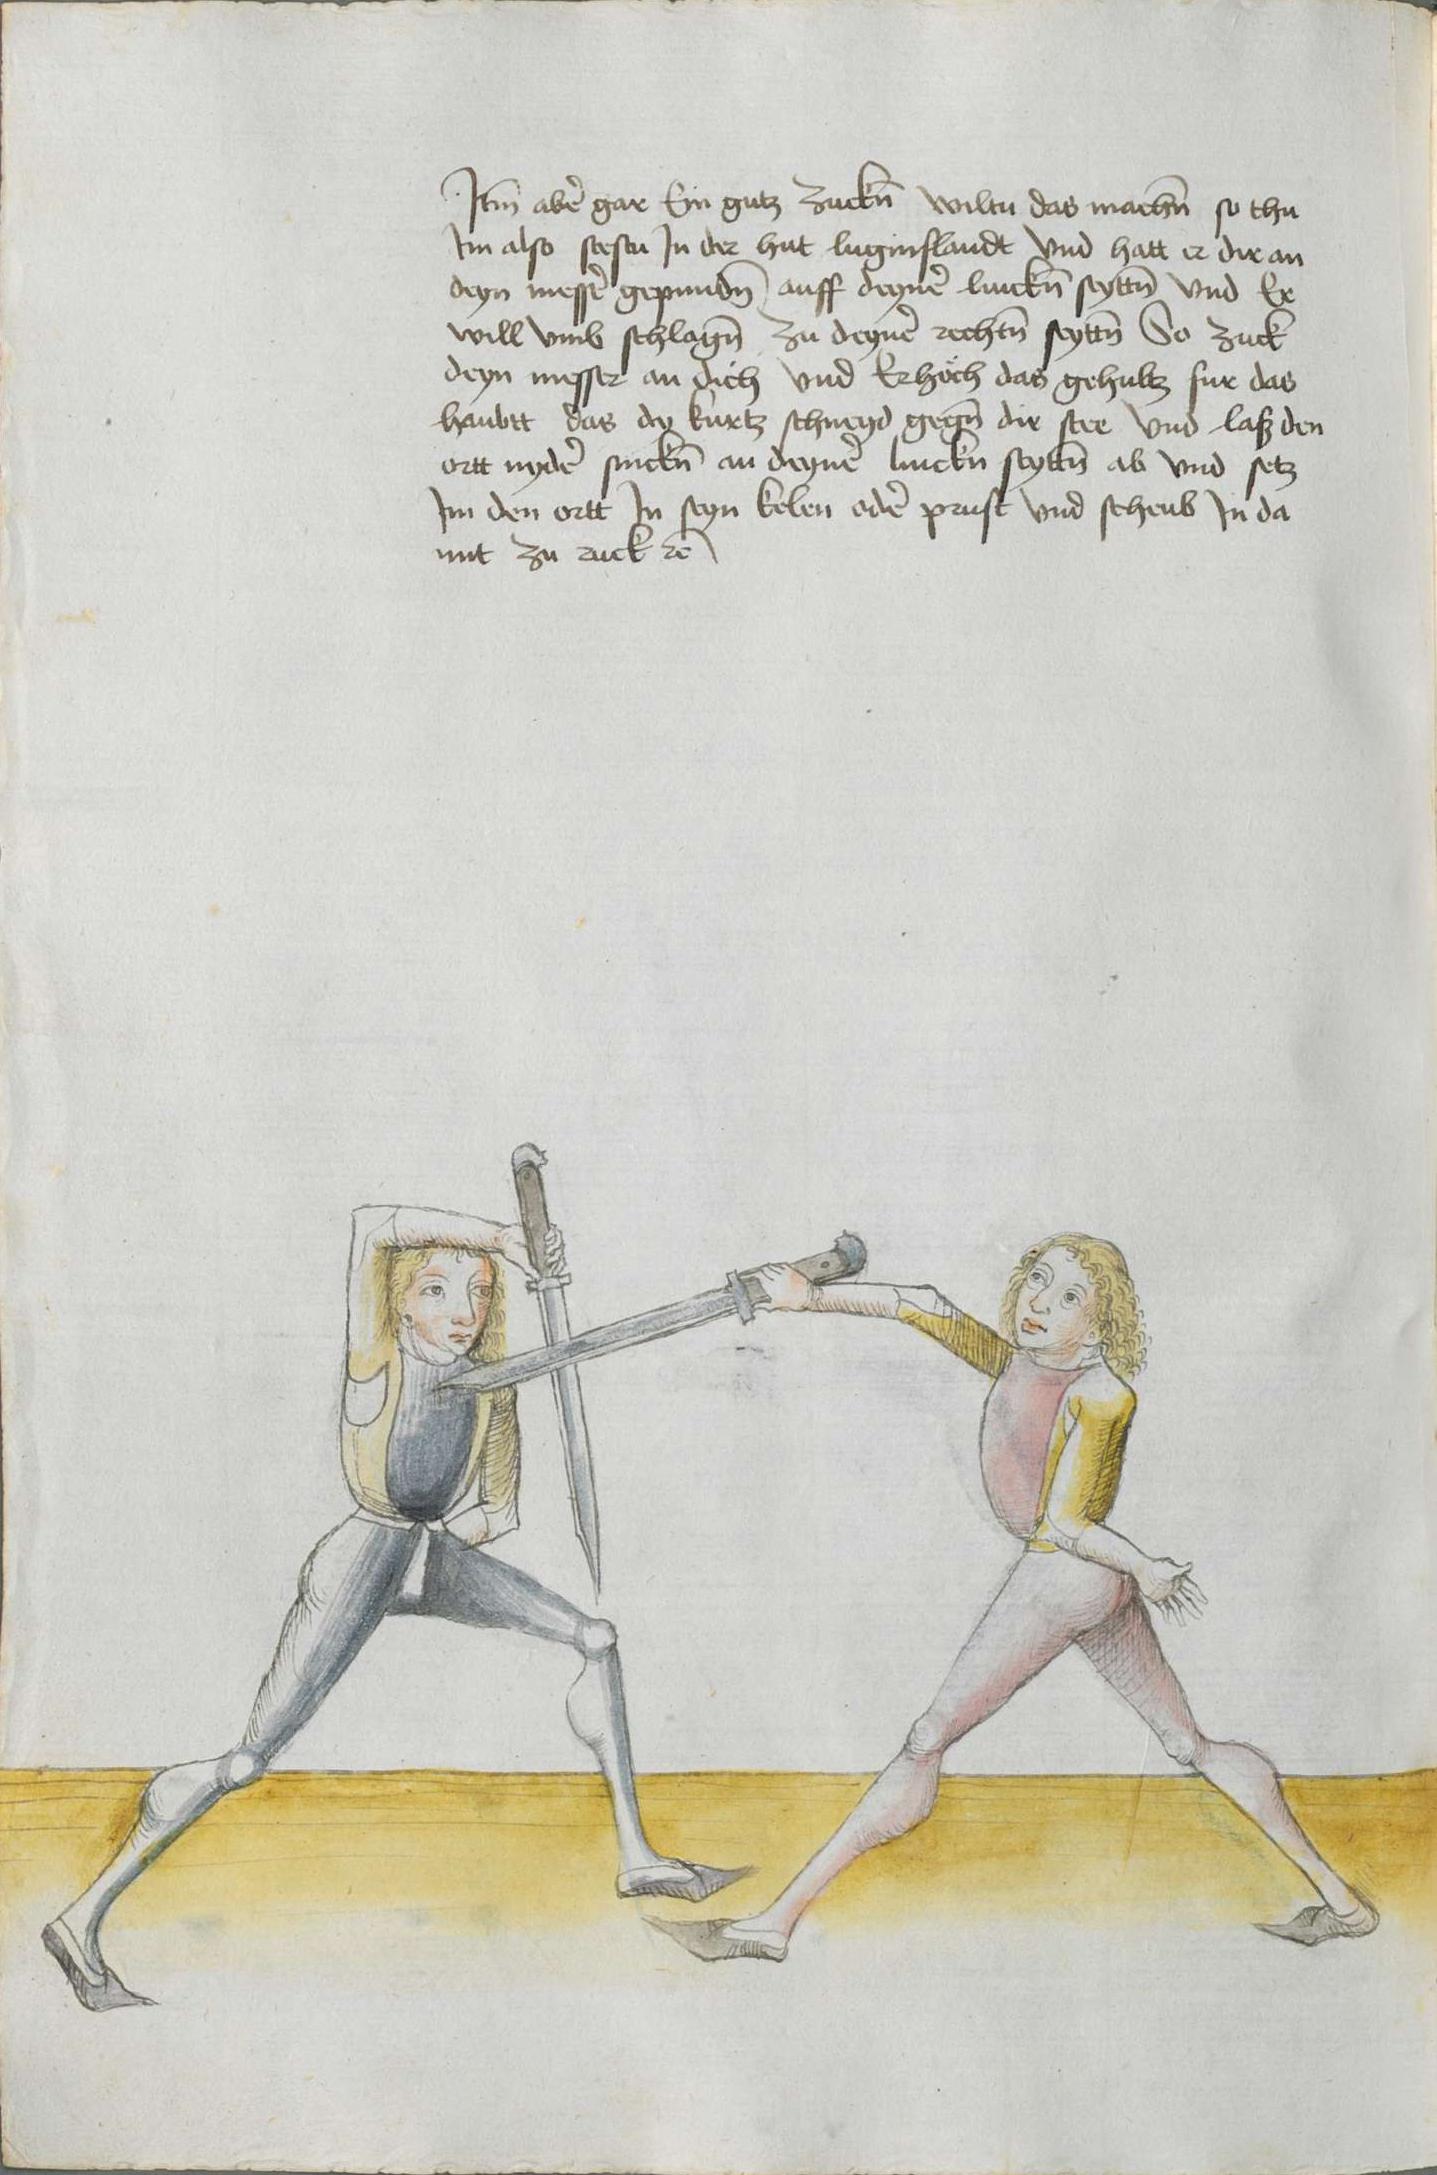 Itm̄ aber̄ gar Ein gutz zuckn̄ wiltu das machn̄ so thu
Im also stestu In der hut luginslandt Vnd hatt er dir an
deyn messer̄ gepundn̄ auff deyner̄ linckn̄ seyttn̄ Vnd Er
will vmb schlagn̄ zu deyner̄ rechtn̄ seyttn̄ So zuck
deyn messer an dich Vnd Erhöch das gehultz fur das
haubtt das dy kurtz schneyd gegn̄ dir stee Vnd laß den
ortt nyder̄ sinckn̄ an deyner̄ linckn seyttn̄ ab Vnd setz
Im den ortt In seyn kelen oder̄ prust Vnd scheub In da
mit zu ruck